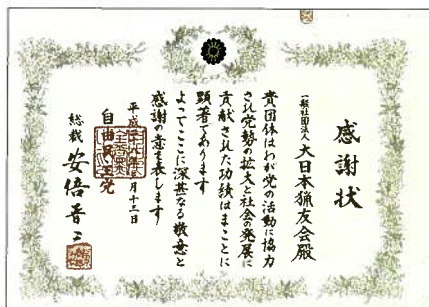 感謝状
一般社団法人 大日本猟友会殿
貴団体はわが党の活動に協力
され党勢の拡大と社会の発展に
貢献された功績はまことに
顕著であります
よってここに深甚なる敬意と
感謝の意を表します
平成 年 月十三日
自由民主党
総裁 安倍晋三